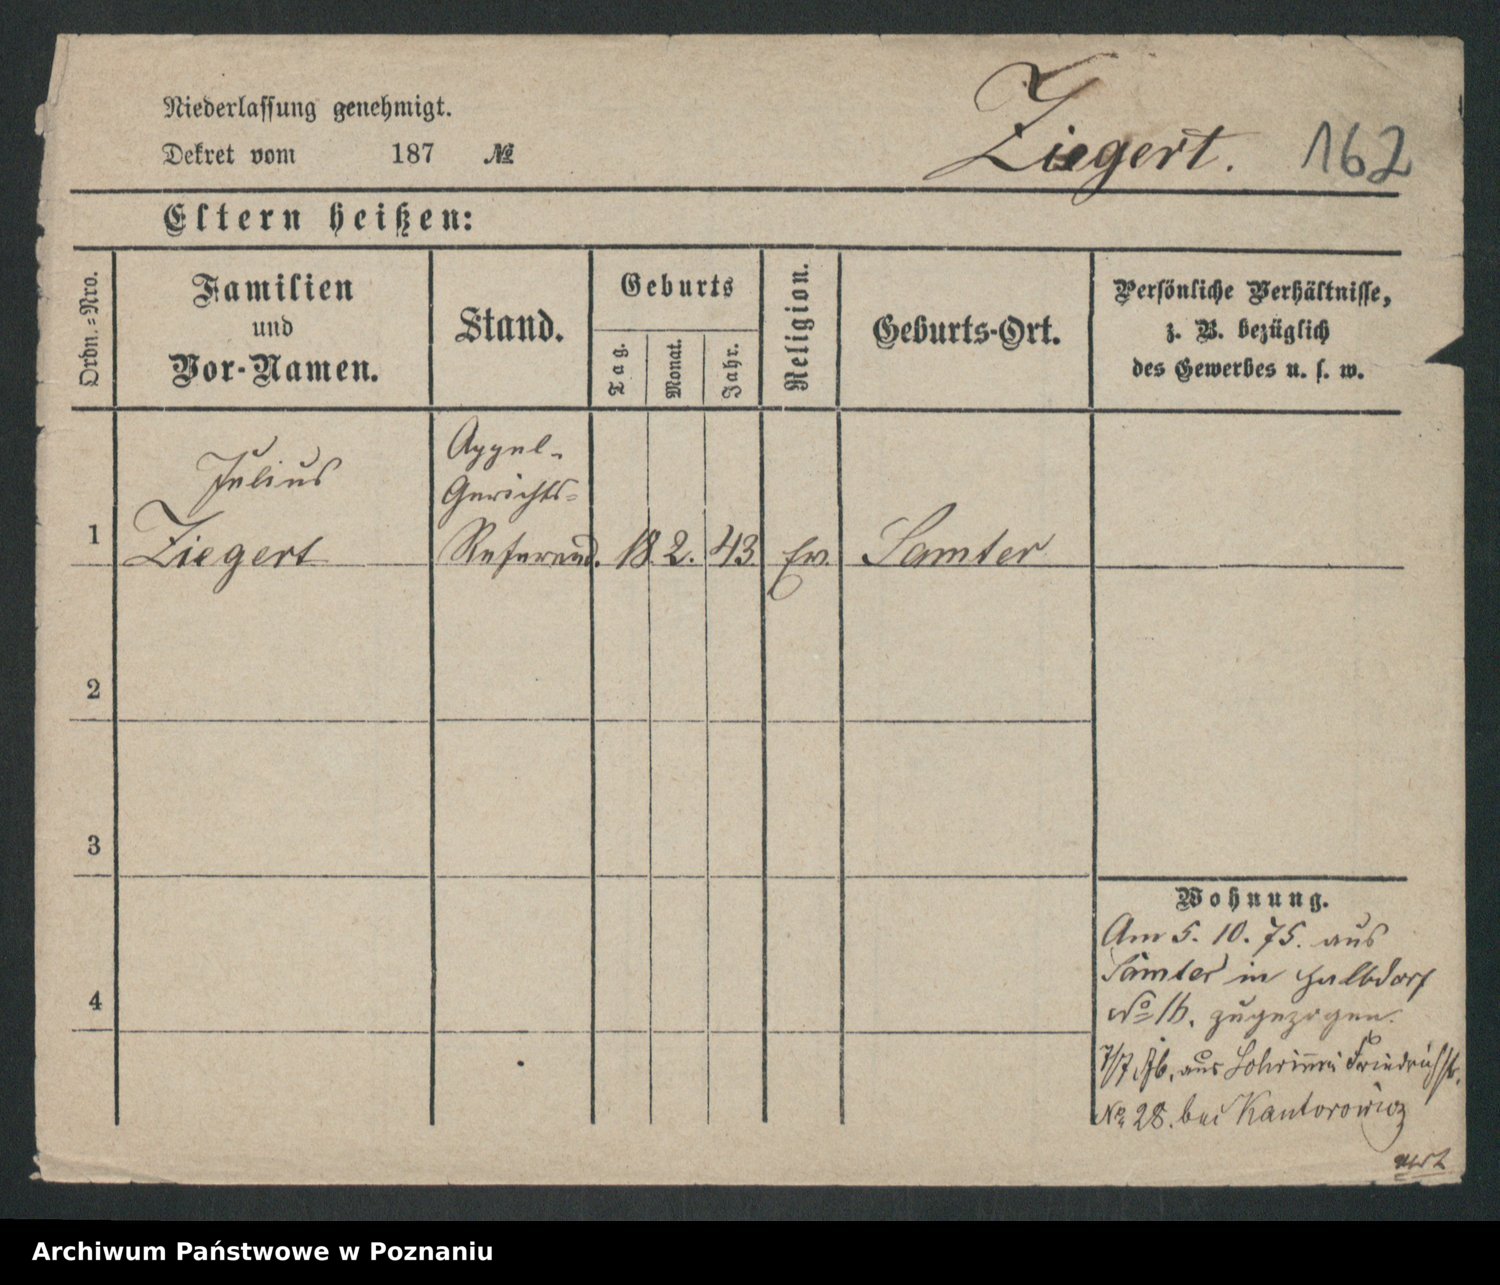 Niederlassung genehmigt.
Dekret vom 187 №
Ziegert. 162
Eltern heißen:
Ordn.=Nro.
Familien
und
Vor-Namen.
Stand.
Geburts
Tag.
Monat.
Jahr.
Religion.
Geburts-Ort.
Persönliche Verhältnisse,
z. B. bezüglich
des Gewerbes u. s. w.
1
Julius
Ziegert
Appel-
Gerichts-
Referend.
18 2. 43
Ev.
Samter
2
3
4
Wohnung.
Am 5. 10. 75. aus
Samter in Halbdorf
No 16. zugezogen.
7/7 76. aus Friedrichstr.
No 28. bei Kantorowicz
Archiwum Państwowe w Poznaniu